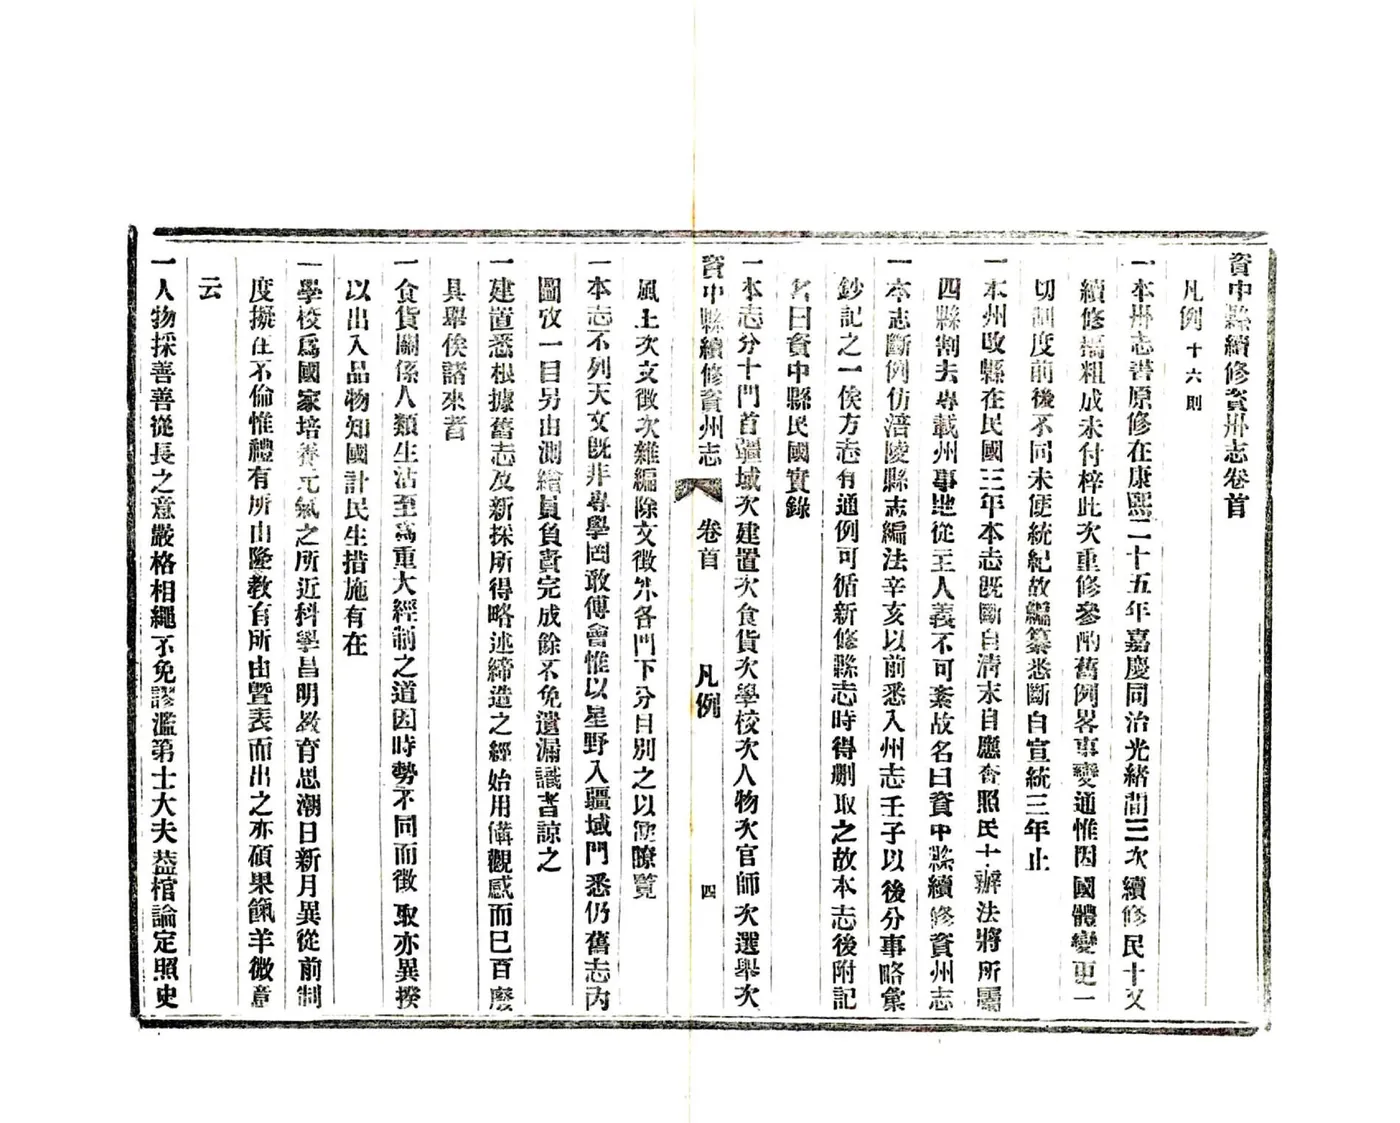 資中縣續修資州志卷首
凡例十六則
一本州志書原修在康熙二十五年嘉慶同治光緒間三次續修民十又
續修稿粗成未付梓此次重修參酌舊例畧事變通惟因國體變更一
切制度前後不同未便統紀故編纂悉斷自宣統三年止
一本州改縣在民國三年本志既斷自清末自應查照民十辦法將所屬
四縣割去專載州事地從主人義不可紊故名曰資中縣續修資州志
一本志斷例仿涪陵縣志編法辛亥以前悉入州志壬子以後分事略彙
鈔記之一俟方志有通例可循新修縣志時得删取之故本志後附記
名曰資中縣民國實錄
一本志分十門首疆域次建置次食貨次學校次人物次官師次選舉次
資中縣續修資州志 卷首 凡例 四
風土次文徵次雜編除文徵外各門下分目別之以便瞭覽
一本志不列天文既非專學罔敢傅會惟以星野入疆域門悉仍舊志內
圖攷一目另由測繪員負責完成餘不免遺漏識者諒之
一建置悉根據舊志及新採所得略述締造之經始用備觀感而已百廢
具舉俟諸來者
一食貨關係人類生活至爲重大經制之道因時勢不同而徵取亦異揆
以出入品物知國計民生措施有在
一學校爲國家培養元氣之所近科學昌明教育思潮日新月異從前制
度擬在不倫惟禮有所由隆教育所由曁表而出之亦碩果餼羊微意
云
一人物採善善從長之意嚴格相繩不免謬濫第士大夫葢棺論定照史